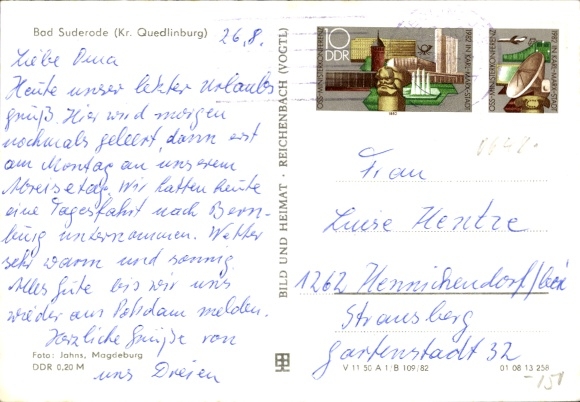 Bad Suderode (Kr. Quedlinburg)
26.8.
Liebe Oma
Heute unser letzter Urlaubs
gruß. Hier wird morgen
nochmals geleert, dann erst
am Montag an unserem
Abreisetag. Wir hatten heute
eine Tagesfahrt nach Bern-
burg unternommen. Wetter
sehr warm und sonnig.
Alles Gute bis wir uns
wieder aus Potsdam melden.
Herzliche Grüße von
uns Dreien
Foto: Jahns, Magdeburg
DDR 0,20 M
BILD UND HEIMAT · REICHENBACH (VOGTL)
10
DDR
OSS-MINISTERKONFERENZ
1982 IN KARL-MARX-STADT
1982
OSS-MINISTERKONFERENZ
1982 IN KARL-MARX-STADT
Frau
Luise Hentze
1262 Hennickendorf/bei
Strausberg
Gartenstadt 32
V 11 50 A 1/B 109/82
01 08 13 258